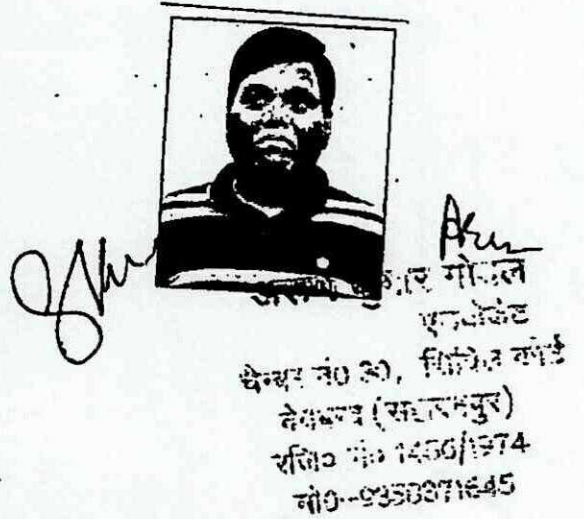 कुमार गोयल
एडवोकेट
चैम्बर नं० 30, सिविल कोर्ट
देवबन्द (सहारनपुर)
रजि० नं० 1456/1974
मो०-9358071645